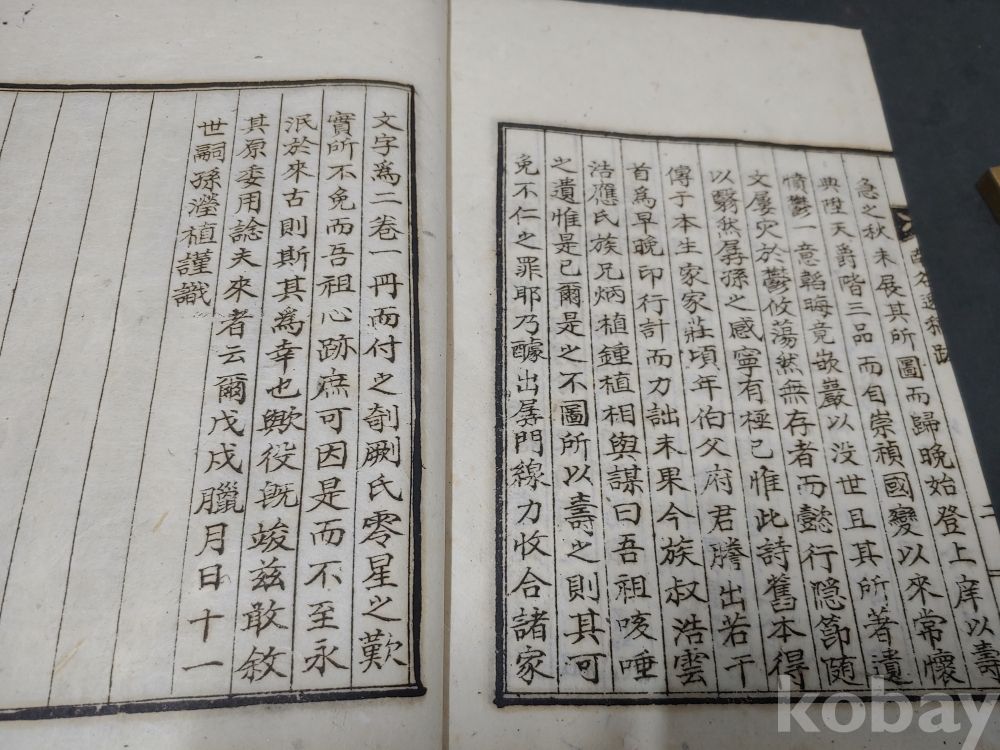 急之秋未展其所圖而歸晚始登上庠以壽
典陞天爵階三品而自崇禎國變以來常懷
憤鬱一意韜晦竟嵌巖以没世且其所著遺
文屢灾於鬱攸蕩然無存者而懿行隱節随
以翳然孱孫之感寧有極已惟此詩舊本得
傳于本生家家莊頃年伯父府君謄出若干
首爲早晩印行計而力詘未果今族叔浩雲
浩應氏族兄炳植鍾植相與謀曰吾祖咳唾
之遺惟是已爾是之不圖所以壽之則其可
免不仁之罪耶乃醵出孱門線力收合諸家
文字爲二卷一冊而付之剞劂氏零星之歎
實所不免而吾祖心跡庶可因是而不至永
泯於來古則斯其為幸也歟役旣竣兹敢敘
其原委用諗夫來者云爾戊戌臘月日十一
世嗣孫瀅植謹識
kobay